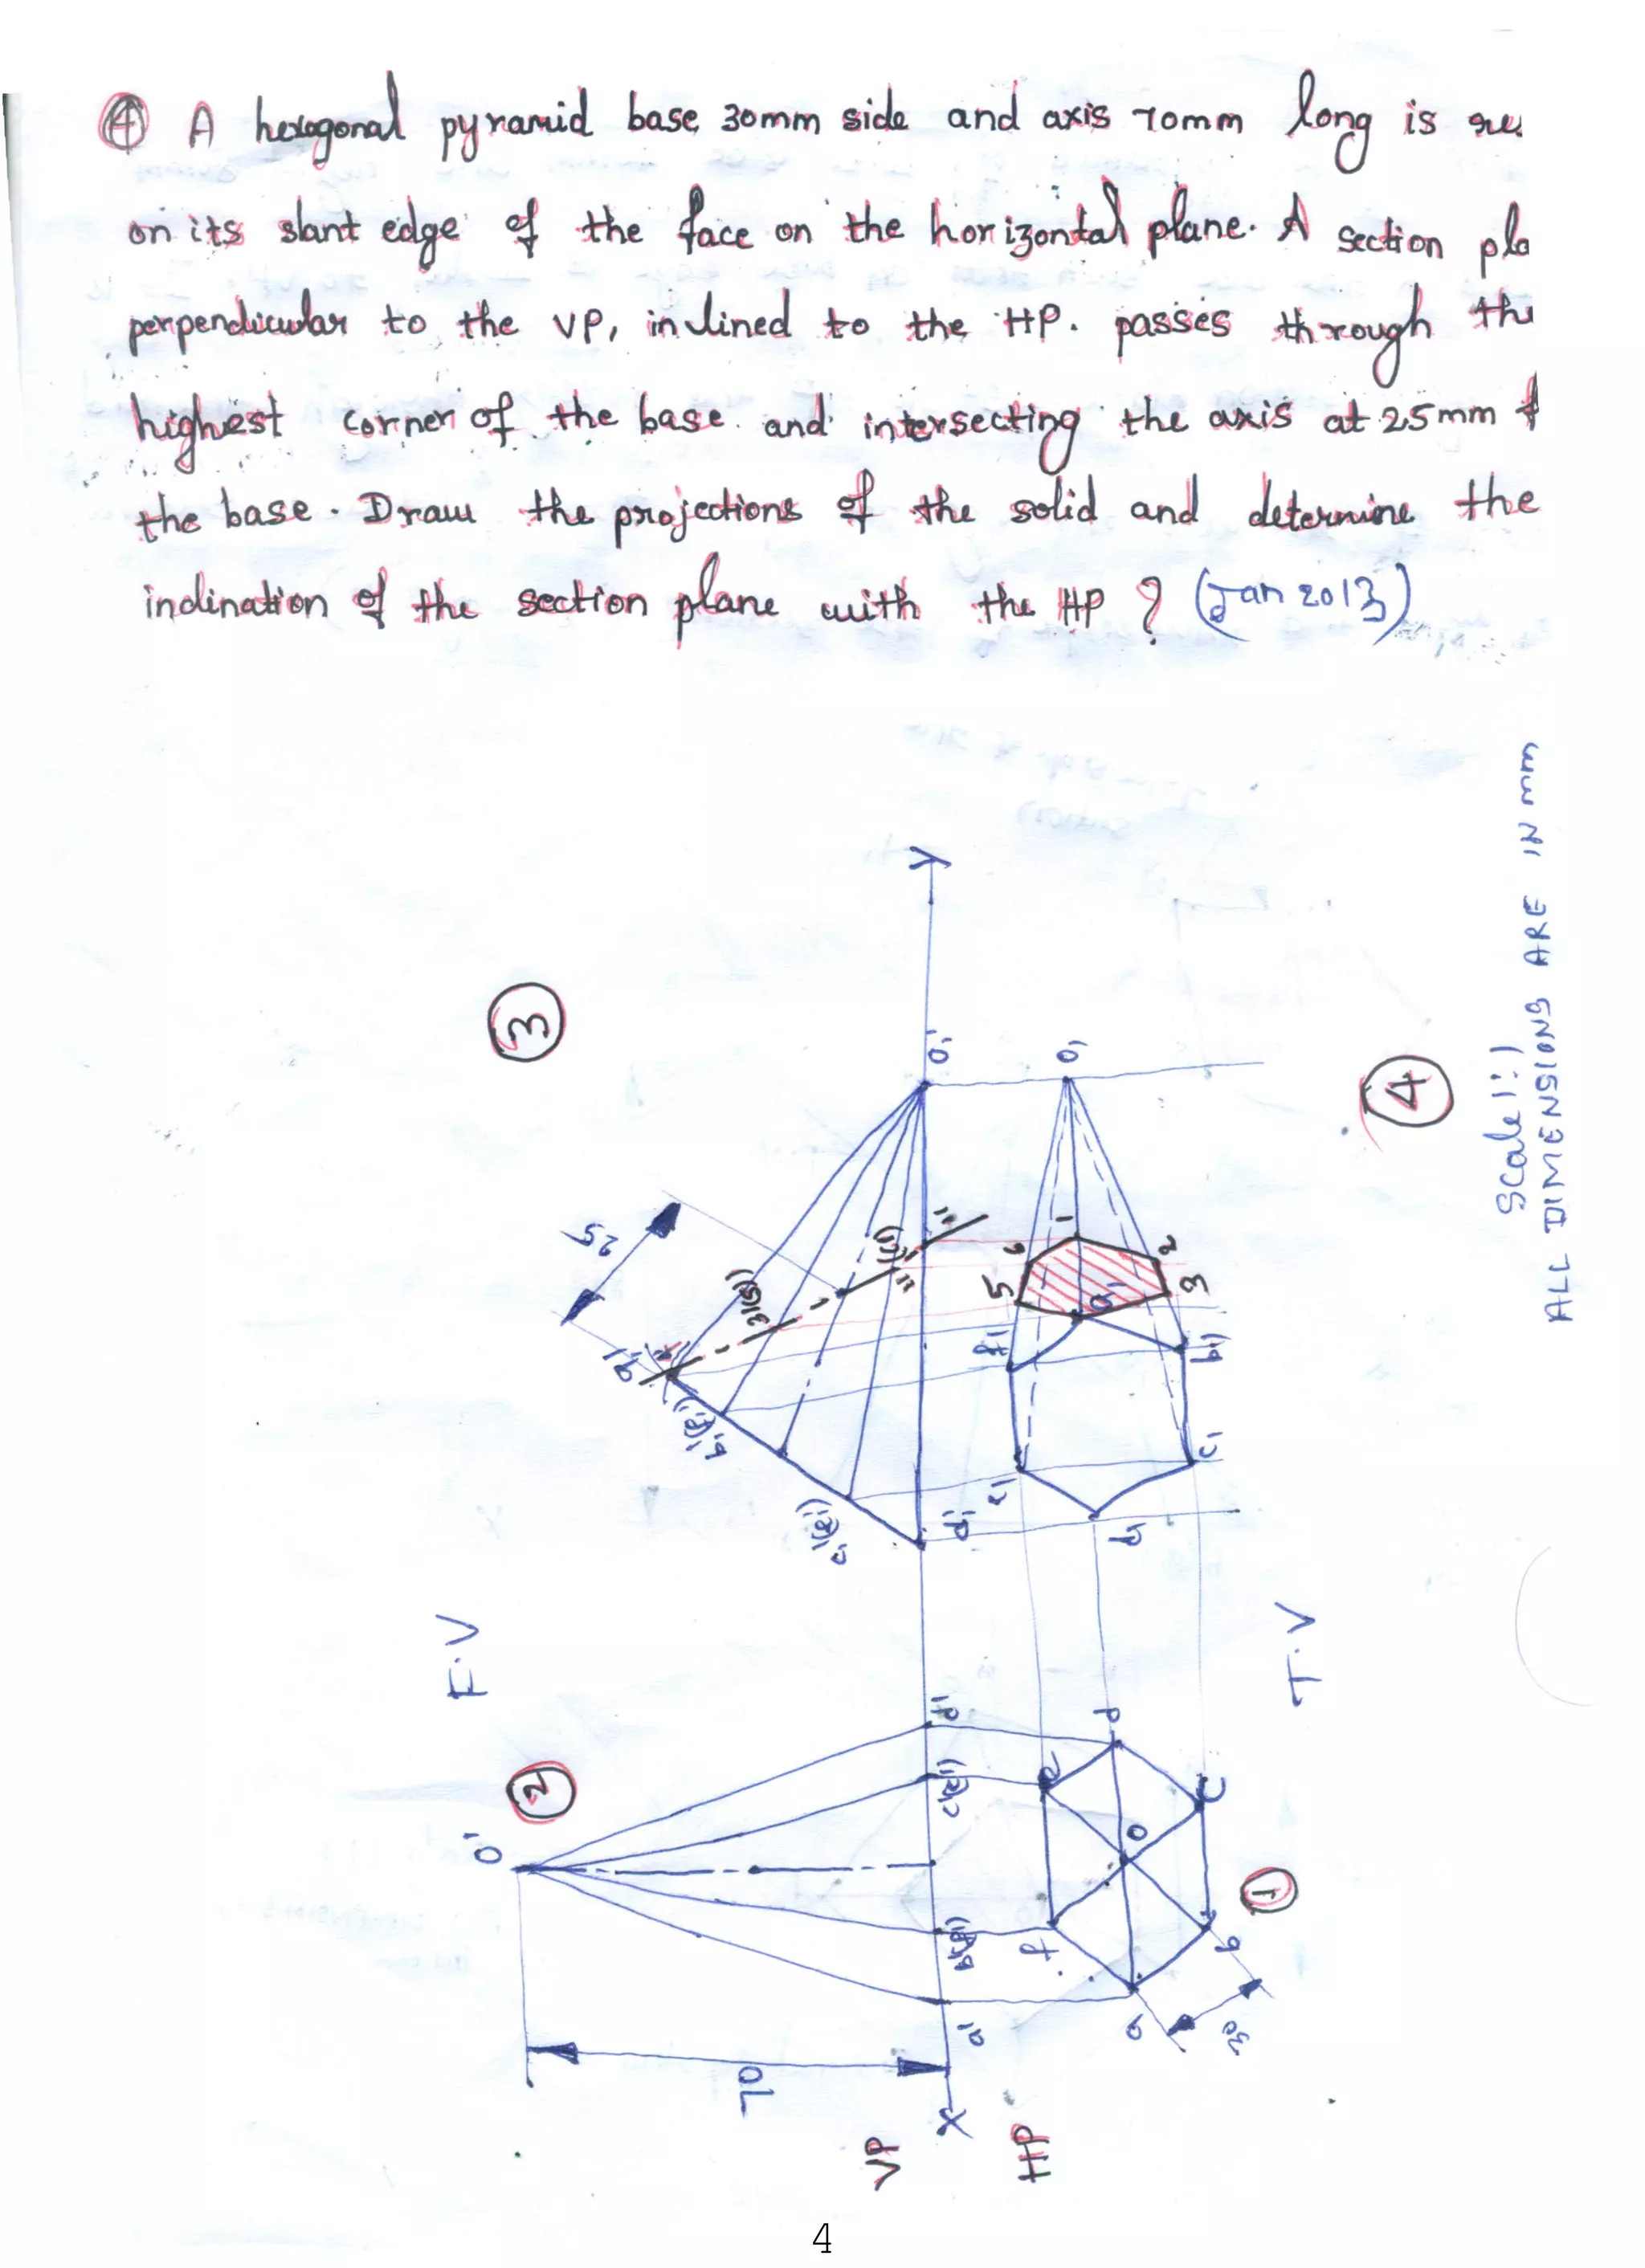 4 A hexagonal pyramid base 30mm side and axis 70mm long is
on its slant edge of the face on the horizontal plane. A section
perpendicular to the VP, inclined to the HP. passes through
highest corner of the base and intersecting the axis at 25mm
the base. Draw the projections of the solid and determine the
inclination of the section plane with the HP ? (Jan 2013)
3
Y
o1'
25
3'(5')
a1'
b1'(f1')
c1'(e1')
d1'
o1
4
1
6
2
5
3
a1
f1
b1
e1
c1
d1
Scale 1:1
ALL DIMENSIONS ARE IN mm
F.V
T.V
2
o'
d'
c'(e')
b'(f')
a'
70
X
VP
HP
d
e
c
o
f
b
a
30
1
4